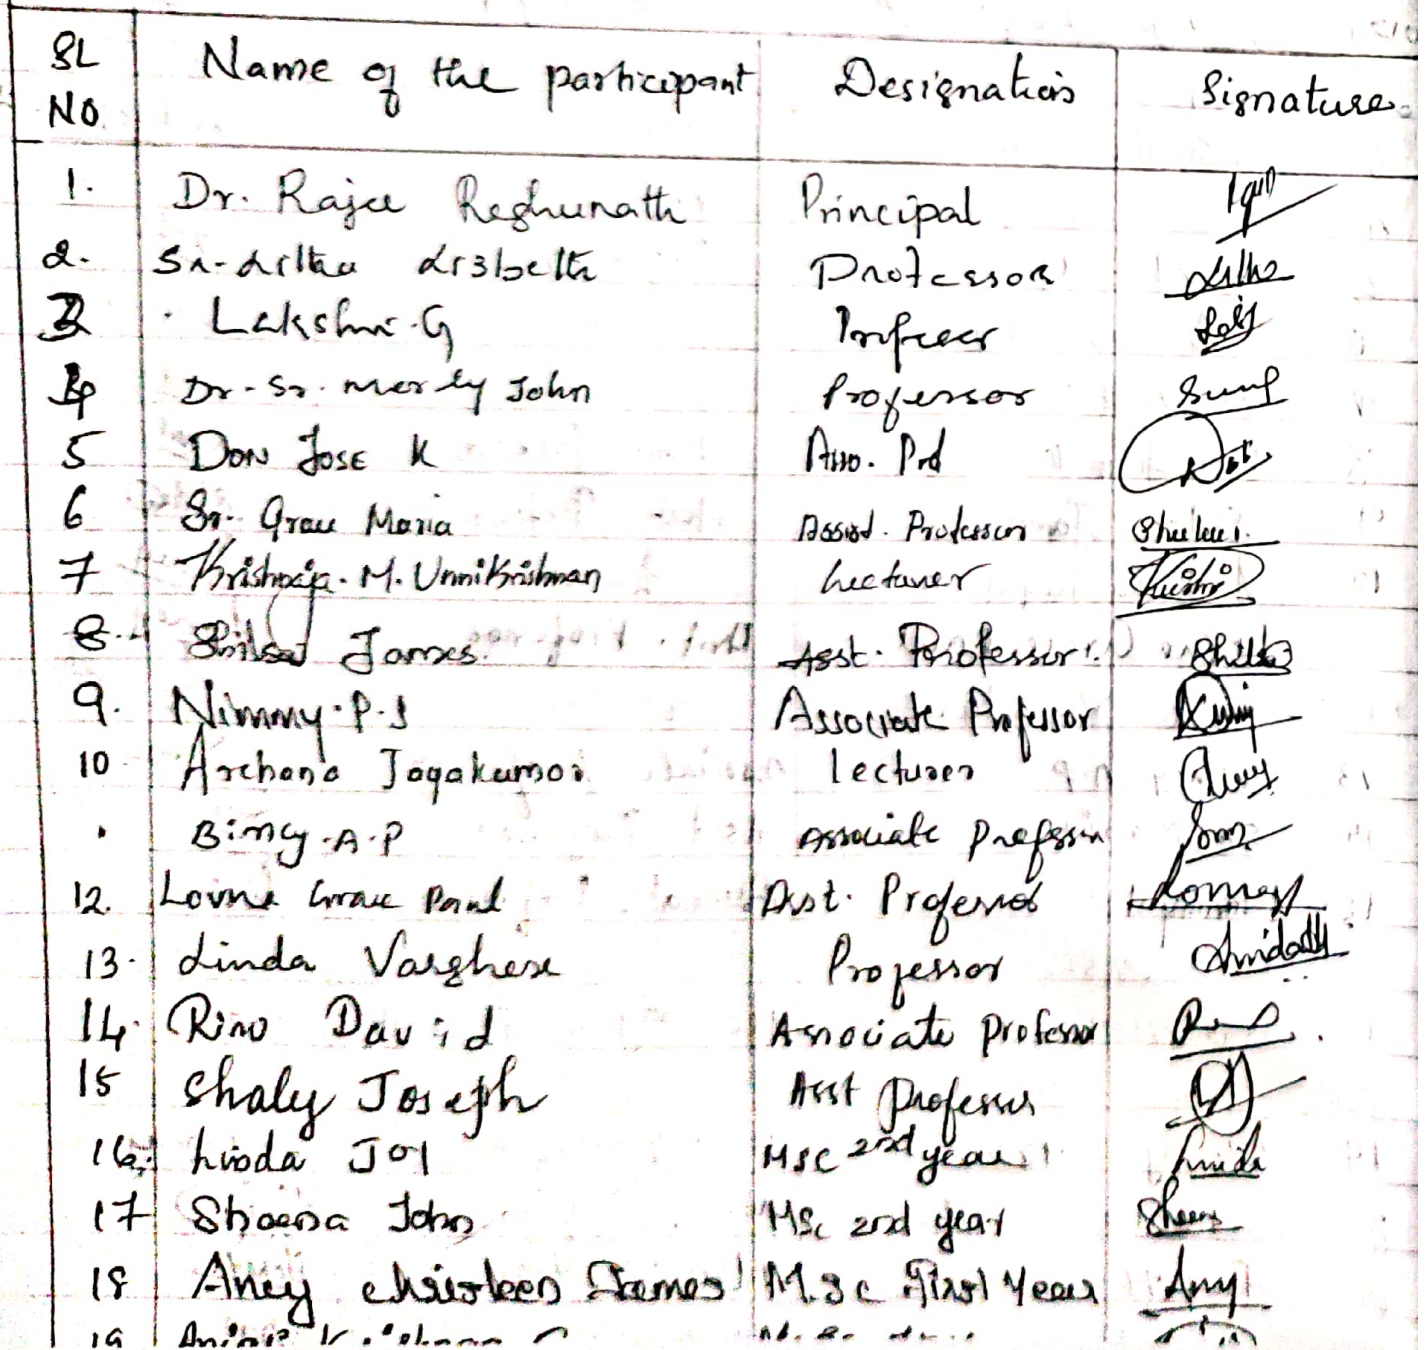 SL NO Name of the participant Designation Signature
1. Dr. Rajee Reghunath Principal
2. Sr. Lilha Lisbeth Professor
3 Lakshmi. G Professor
4 Dr. Sr. Merly John Professor
5 DON JOSE K Asso. Prof
6 Sr. Grace Maria Assist. Professor
7 Krishnaja. M. Unnikrishnan Lecturer
8. Shilsa James Asst. Professor Shilsa
9. Nimmy. P. J Associate Professor
10 Archana Jayakumar Lecturer
Bincy. A. P Associate Professor
12. Lovna Grace Paul Asst. Professor
13. Linda Varghese Professor
14. Rino David Associate Professor
15 Shaly Joseph Asst Professor
16. Linda Joy MSC 2nd year
17 Sheena John MSc 2nd year
18 Aney Christeen James M.Sc First Year Any
19